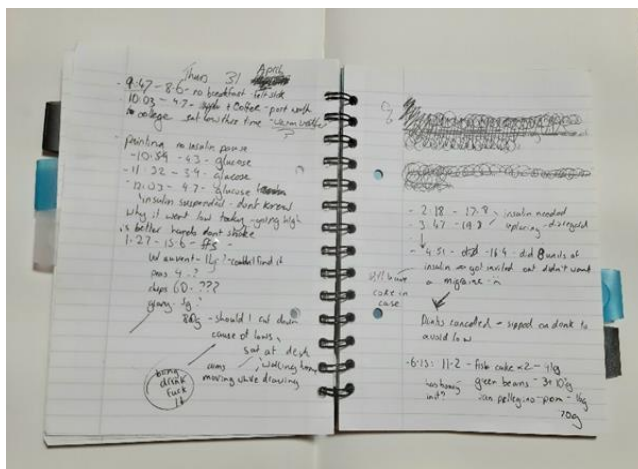 Thurs 31 April
- 9:47 - 8.6 - no breakfast - felt sick
10:03 - 4.7 - + coffee - part walk
to college sat low this time - warm weather
?
- painting no insulin pause
- 10:59 - 4.3 - glucose
- 11:32 - 3.9 - glucose
- 12:03 - 4.7 - glucose
insulin suspended - dont know
why it went low today - going high
is better hands dont shake
1:27 - 15.6 -
- couldnt find it
peas 4 ?
chips 60 - ???
gravy - 3g ?
80g - should I cut down
cause of lows,
sat at desk
arms, walking home
moving while drawing
being
drunk
fuck
it
- 2:18 - 17.8 - insulin needed
- 3:47 - 19.8 replacing - disregard
- 4:51 - did - 16.4 - did 8 units of
insulin got invited out didn't want
a migraine
still have
coke in
case
Drinks cancelled - sipped on drink to
avoid low
- 6:15: 11.2 - fish cake x2 - 41g
green beans - 3g
san pellegrino - pom - 16g
70g